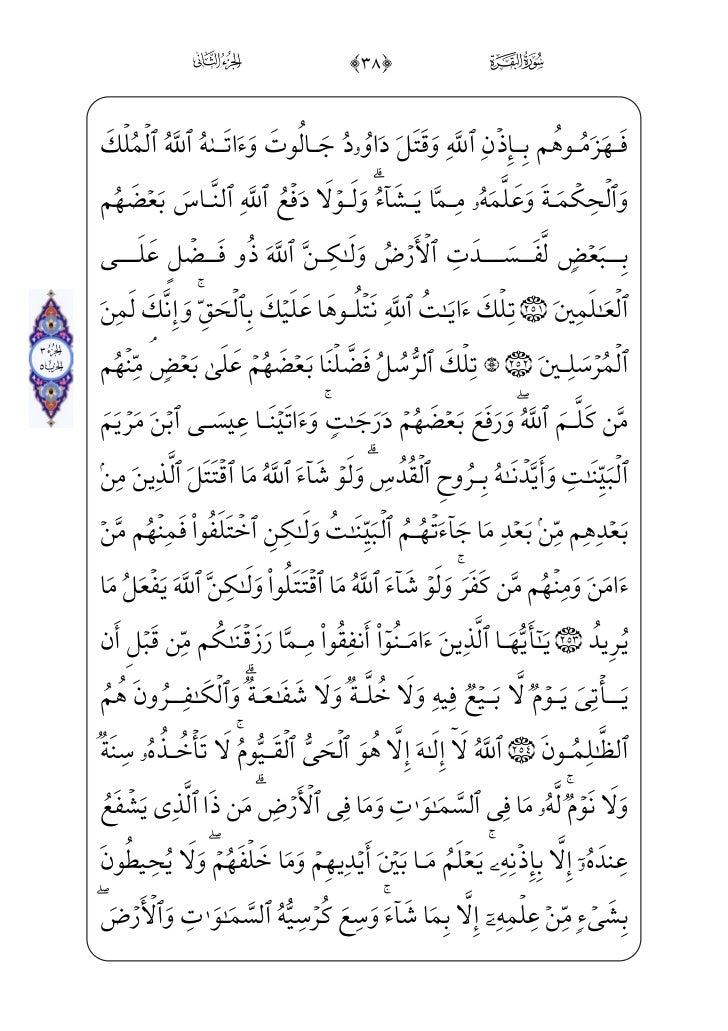 سُورَةُ البَقَرَةِ ﴿٣٨﴾ الجُزْءُ الثَّانِي
فَهَزَمُوهُم بِإِذْنِ ٱللَّهِ وَقَتَلَ دَاوُۥدُ جَالُوتَ وَءَاتَىٰهُ ٱللَّهُ ٱلْمُلْكَ
وَٱلْحِكْمَةَ وَعَلَّمَهُۥ مِمَّا يَشَآءُ ۗ وَلَوْلَا دَفْعُ ٱللَّهِ ٱلنَّاسَ بَعْضَهُم
بِبَعْضٍ لَّفَسَدَتِ ٱلْأَرْضُ وَلَٰكِنَّ ٱللَّهَ ذُو فَضْلٍ عَلَى
ٱلْعَٰلَمِينَ ٢٥١ تِلْكَ ءَايَٰتُ ٱللَّهِ نَتْلُوهَا عَلَيْكَ بِٱلْحَقِّ ۚ وَإِنَّكَ لَمِنَ
ٱلْمُرْسَلِينَ ٢٥٢ ۞ تِلْكَ ٱلرُّسُلُ فَضَّلْنَا بَعْضَهُمْ عَلَىٰ بَعْضٍ ۘ مِّنْهُم
مَّن كَلَّمَ ٱللَّهُ ۖ وَرَفَعَ بَعْضَهُمْ دَرَجَٰتٍ ۚ وَءَاتَيْنَا عِيسَى ٱبْنَ مَرْيَمَ
ٱلْبَيِّنَٰتِ وَأَيَّدْنَٰهُ بِرُوحِ ٱلْقُدُسِ ۗ وَلَوْ شَآءَ ٱللَّهُ مَا ٱقْتَتَلَ ٱلَّذِينَ مِنۢ
بَعْدِهِم مِّنۢ بَعْدِ مَا جَآءَتْهُمُ ٱلْبَيِّنَٰتُ وَلَٰكِنِ ٱخْتَلَفُوا۟ فَمِنْهُم مَّنْ
ءَامَنَ وَمِنْهُم مَّن كَفَرَ ۚ وَلَوْ شَآءَ ٱللَّهُ مَا ٱقْتَتَلُوا۟ وَلَٰكِنَّ ٱللَّهَ يَفْعَلُ مَا
يُرِيدُ ٢٥٣ يَٰٓأَيُّهَا ٱلَّذِينَ ءَامَنُوٓا۟ أَنفِقُوا۟ مِمَّا رَزَقْنَٰكُم مِّن قَبْلِ أَن
يَأْتِىَ يَوْمٌ لَّا بَيْعٌ فِيهِ وَلَا خُلَّةٌ وَلَا شَفَٰعَةٌ ۗ وَٱلْكَٰفِرُونَ هُمُ
ٱلظَّٰلِمُونَ ٢٥٤ ٱللَّهُ لَآ إِلَٰهَ إِلَّا هُوَ ٱلْحَىُّ ٱلْقَيُّومُ ۚ لَا تَأْخُذُهُۥ سِنَةٌ
وَلَا نَوْمٌ ۚ لَّهُۥ مَا فِى ٱلسَّمَٰوَٰتِ وَمَا فِى ٱلْأَرْضِ ۗ مَن ذَا ٱلَّذِى يَشْفَعُ
عِندَهُۥٓ إِلَّا بِإِذْنِهِۦ ۚ يَعْلَمُ مَا بَيْنَ أَيْدِيهِمْ وَمَا خَلْفَهُمْ ۖ وَلَا يُحِيطُونَ
بِشَىْءٍ مِّنْ عِلْمِهِۦٓ إِلَّا بِمَا شَآءَ ۚ وَسِعَ كُرْسِيُّهُ ٱلسَّمَٰوَٰتِ وَٱلْأَرْضَ ۖ
الجزء ٣
الحزب ٥